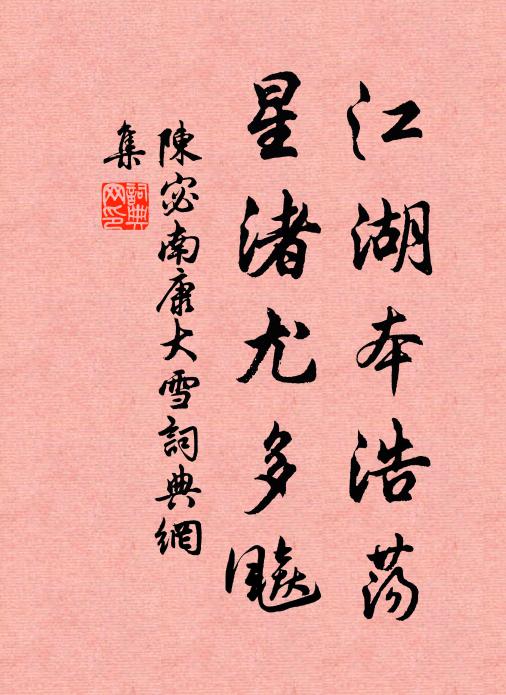 江湖本浩荡
星渚尤多飈
陳宓南康大雪詞典網
集
詞典
网印